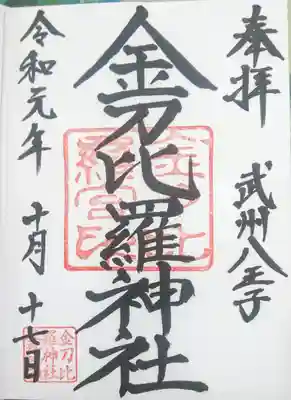 奉拝
武州八王子
金刀比羅神社
令和元年 十月 十七日
金刀比
羅神社